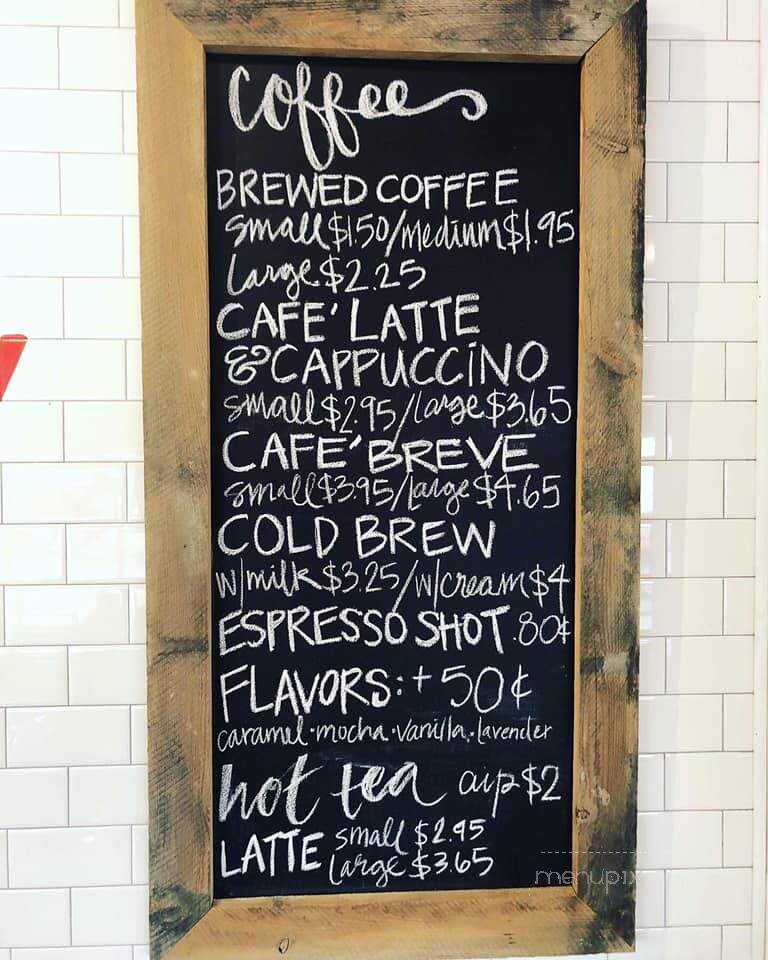 coffee
BREWED COFFEE
small $1.50/medium $1.95
large $2.25
CAFE' LATTE
& CAPPUCCINO
small $2.95/large $3.65
CAFE' BREVE
small $3.95/large $4.65
COLD BREW
w/milk $3.25/w/cream $4
ESPRESSO SHOT .80¢
FLAVORS: + 50¢
caramel · mocha · vanilla · lavender
hot tea cup $2
LATTE small $2.95
large $3.65
menupix